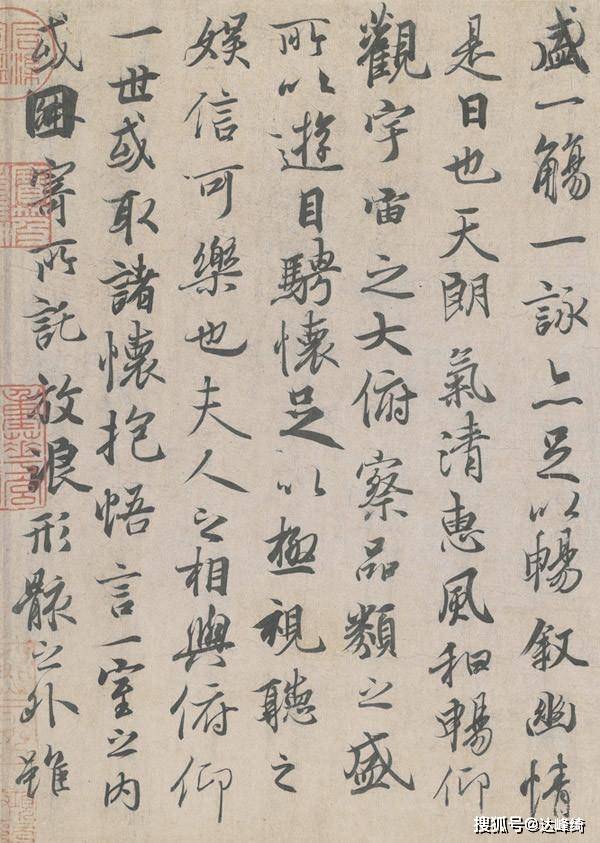 盛一觴一詠亦足以暢叙幽情
是日也天朗氣清惠風和暢仰
觀宇宙之大俯察品類之盛
所以遊目騁懷足以極視聽之
娛信可樂也夫人之相與俯仰
一世或取諸懷抱悟言一室之内
或因寄所託放浪形骸之外雖
搜狐号@达峰绮